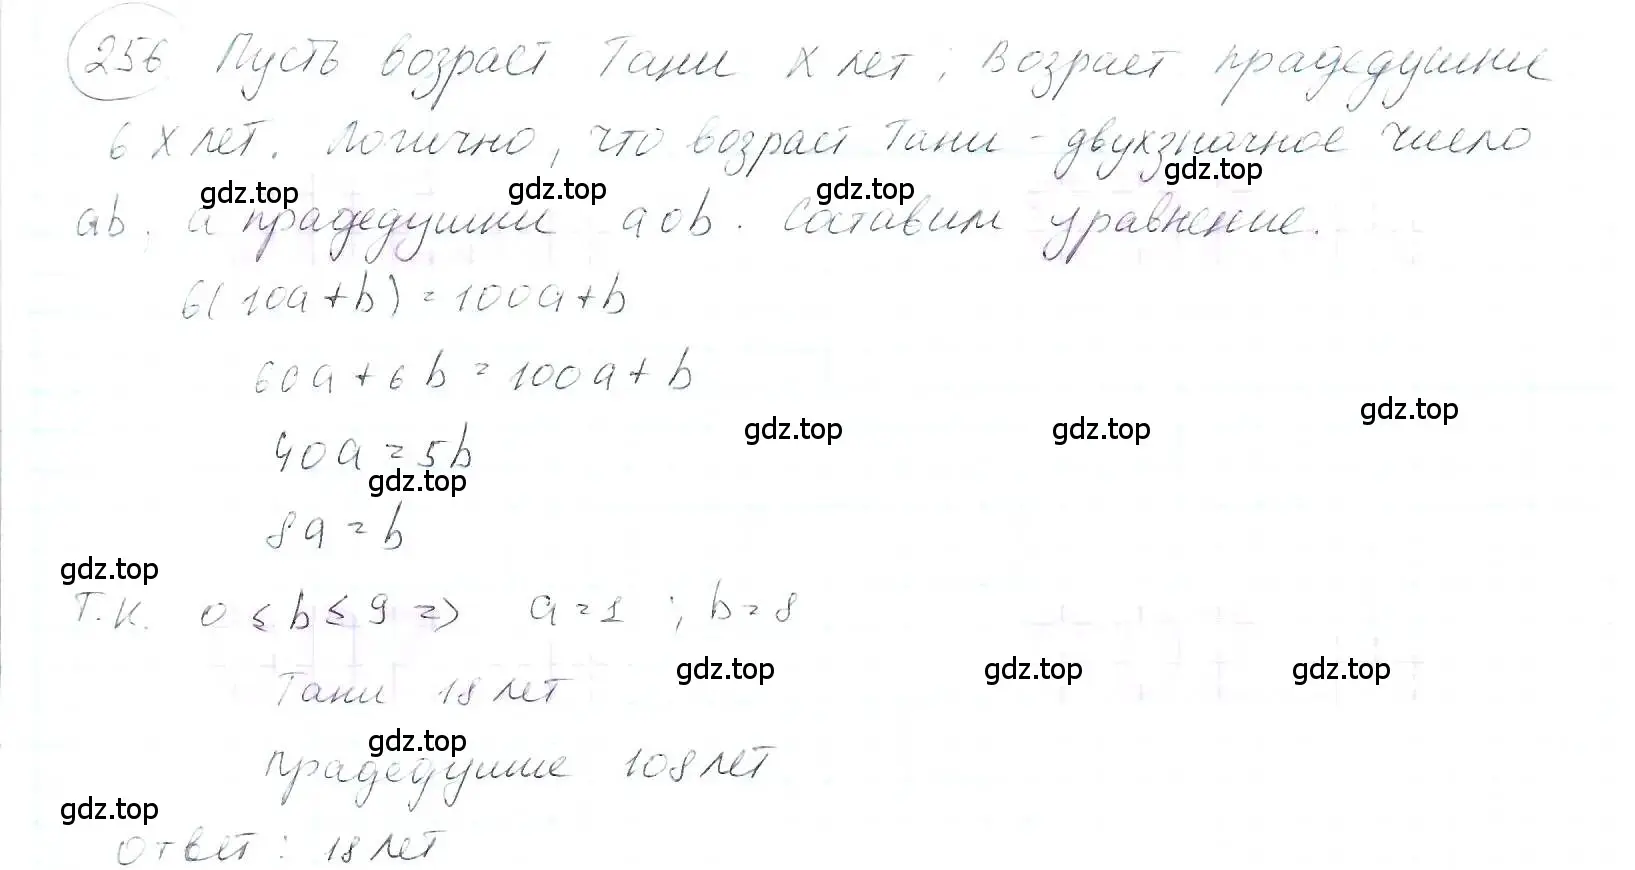 256 Пусть возраст Тани x лет, Возраст прадедушки
6x лет. Логично, что возраст Тани - двухзначное число
gdz.top gdz.top gdz.top gdz.top
ab, а прадедушки a0b. Составим уравнение.
6(10a+b)=100a+b
60a+6b=100a+b
gdz.top gdz.top gdz.top
40a=5b
gdz.top
8a=b
gdz.top
Т.К. 0≤b≤9 => a=1; b=8
gdz.top gdz.top gdz.top
Тани 18 лет
gdz.top
прадедушке 108 лет
gdz.top
Ответ: 18 лет